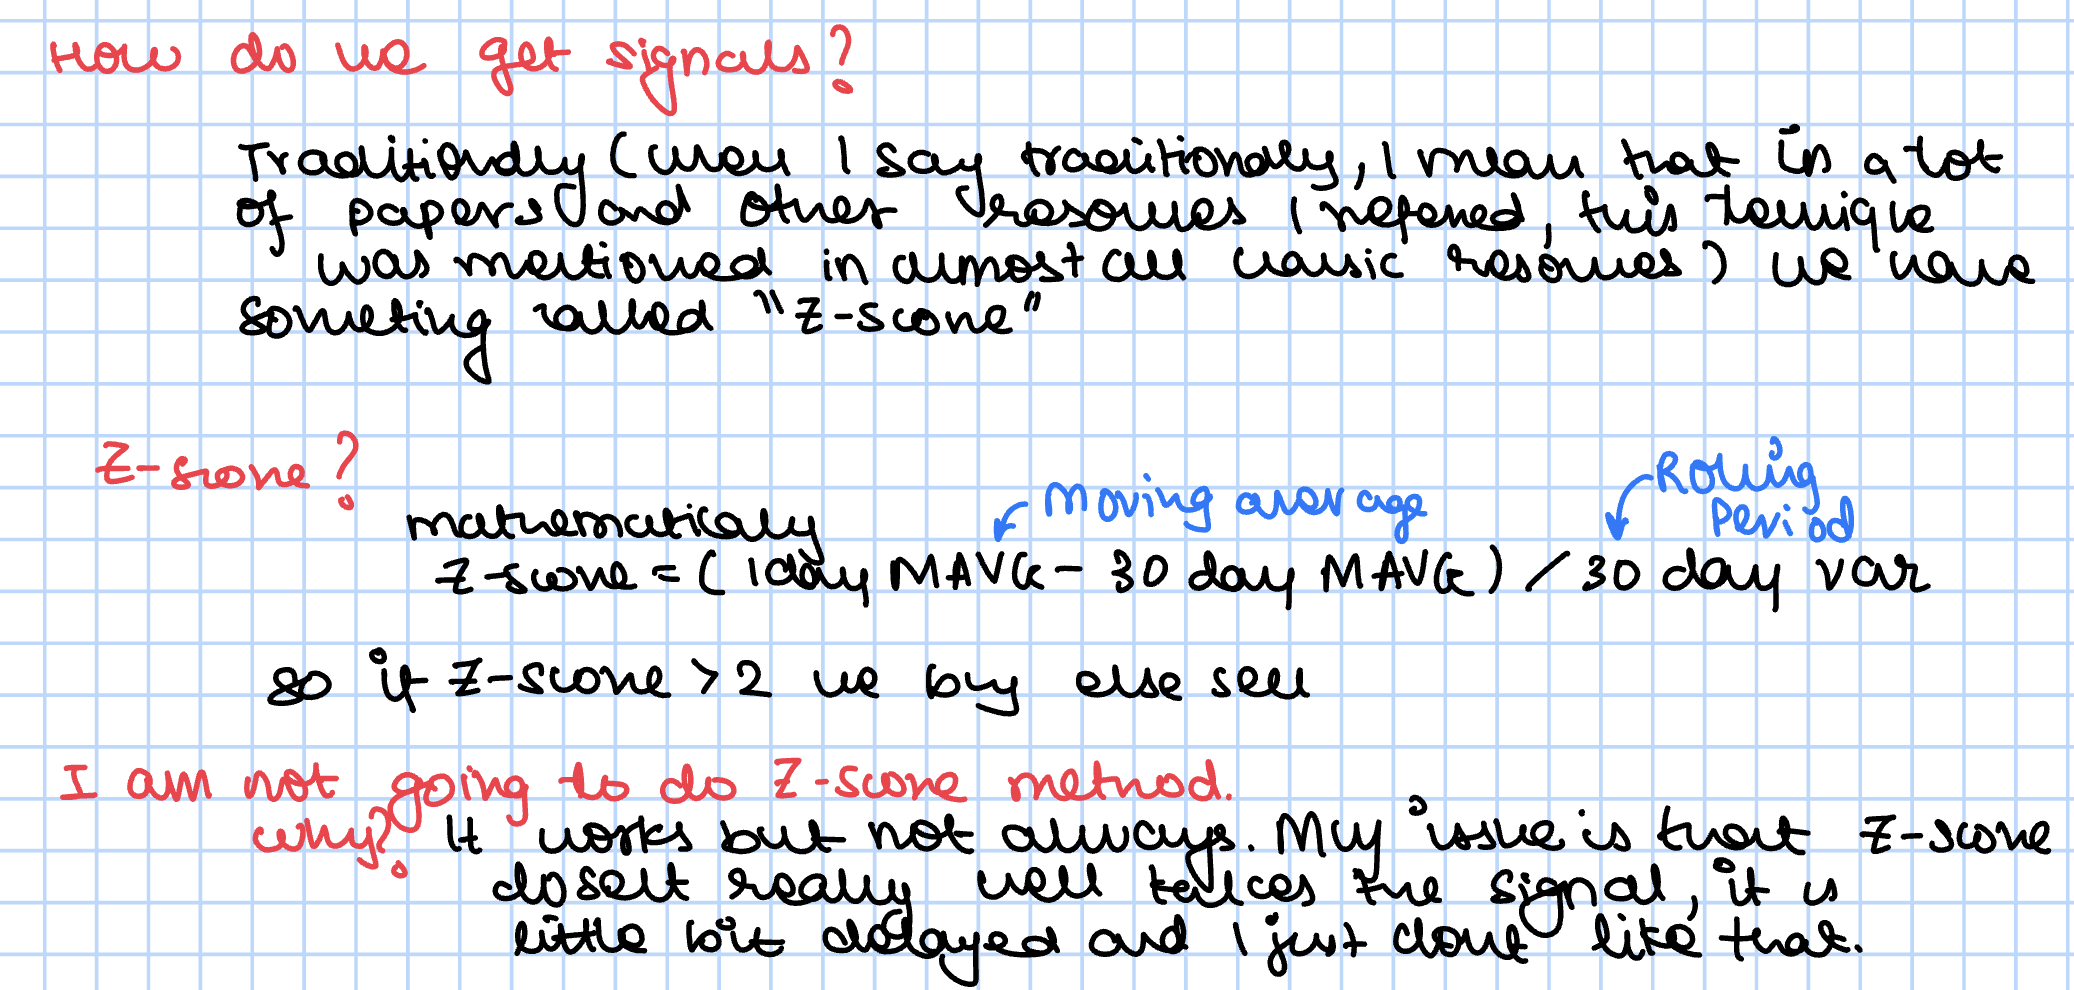 How do we get signals?
Traditionally (when I say traditionally, I mean that in a lot
of papers and other resources I refered, this technique
was mentioned in almost all classic resources) we have
someting called "Z-score"
Z-score?
Moving average
Rolling
Period
mathematically
Z-score = (1day MAVG - 30 day MAVG) / 30 day var
so if Z-score > 2 we buy else sell
I am not going to do Z-score method.
why? It works but not always. My issue is that Z-score
dosen't really well takes the signal, it is
little bit delayed and I just dont like that.